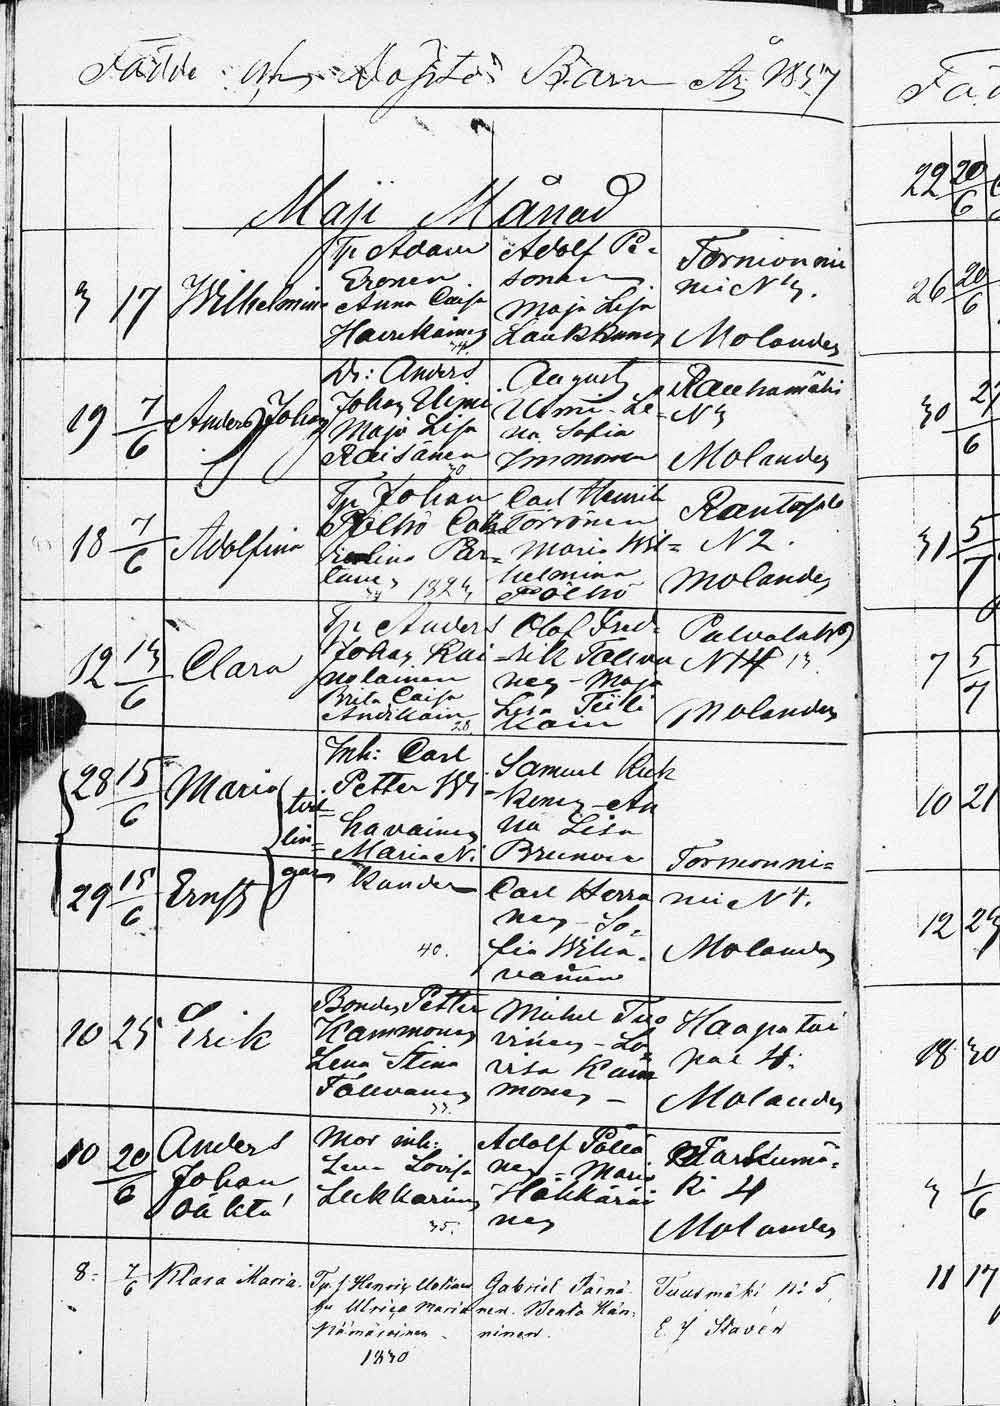 Födde och Döpte Barn År 1857
Maji Månad
3 17 Wilhelmina
Tp Adam
Eronen
Anna Caisa
Haurikainen
34.
Adolf Pe-
sonen
Maja Lisa
Laukkanen
Tornionni
mi N 3.
Molander
19 7/6 Anders Johan
Dr: Anders
Johan Uimi
Maja Lisa
Räisänen
30
August
Uimi - Le-
na Sofia
Immonen
Rauhamäki
N 3
Molander
18 7/6 Adolfina
Tp Johan
Pölhö Cath
Par-
tanen
34 1823
Carl Henrik
Törrönen
Maria Wil-
helmina
Pölhö
Rantasalo
N 2.
Molander
12 13/6 Clara
Tp Anders
Johan Kai-
nolainen
Brita Caisa
Antikain
28
Olof Fred-
rik Tolva
nen - Maja
Lisa Teili
kain
N 14 13
Molander
28 15/6 Maria
29 15/6 Ernst
tvil-
lin-
gar
Inh: Carl
Petter Wi
havainen
Maria N.
kander
40.
Samuel Kuk
konen - An
na Lisa
Brunou
Carl Herra
nen - So-
fia Wiha-
vainen
Tornionni-
mi N 4.
Molander
10 25 Erik
Bonden Petter
Kammonen
Lena Stina
Tolvanen
33.
Michel Tuo
vinen - Lo
visa Kam
monen -
Haapatai
pal 4.
Molander
10 20/6 Anders
Johan
oäkta
Mor inh:
Lena Lovisa
Lekkarinen
35.
Adolf Pöllä
nen - Maria
Häkkäräi
nen
Harkumä-
ki 4
Molander
8. 7/6 Klara Maria.
Tp. f Henric
hu Ulrica Maria
Hämäläinen.
1830
Gabriel Päiviä
nen. Beata Hän-
ninen.
Tuusmäki No 5.
E. J Stavén
Föd
22 20/6
26 20/6
30 21/6
31 5/7
7 5/7
10 21
12 23
18 30
3 1/6
11 17